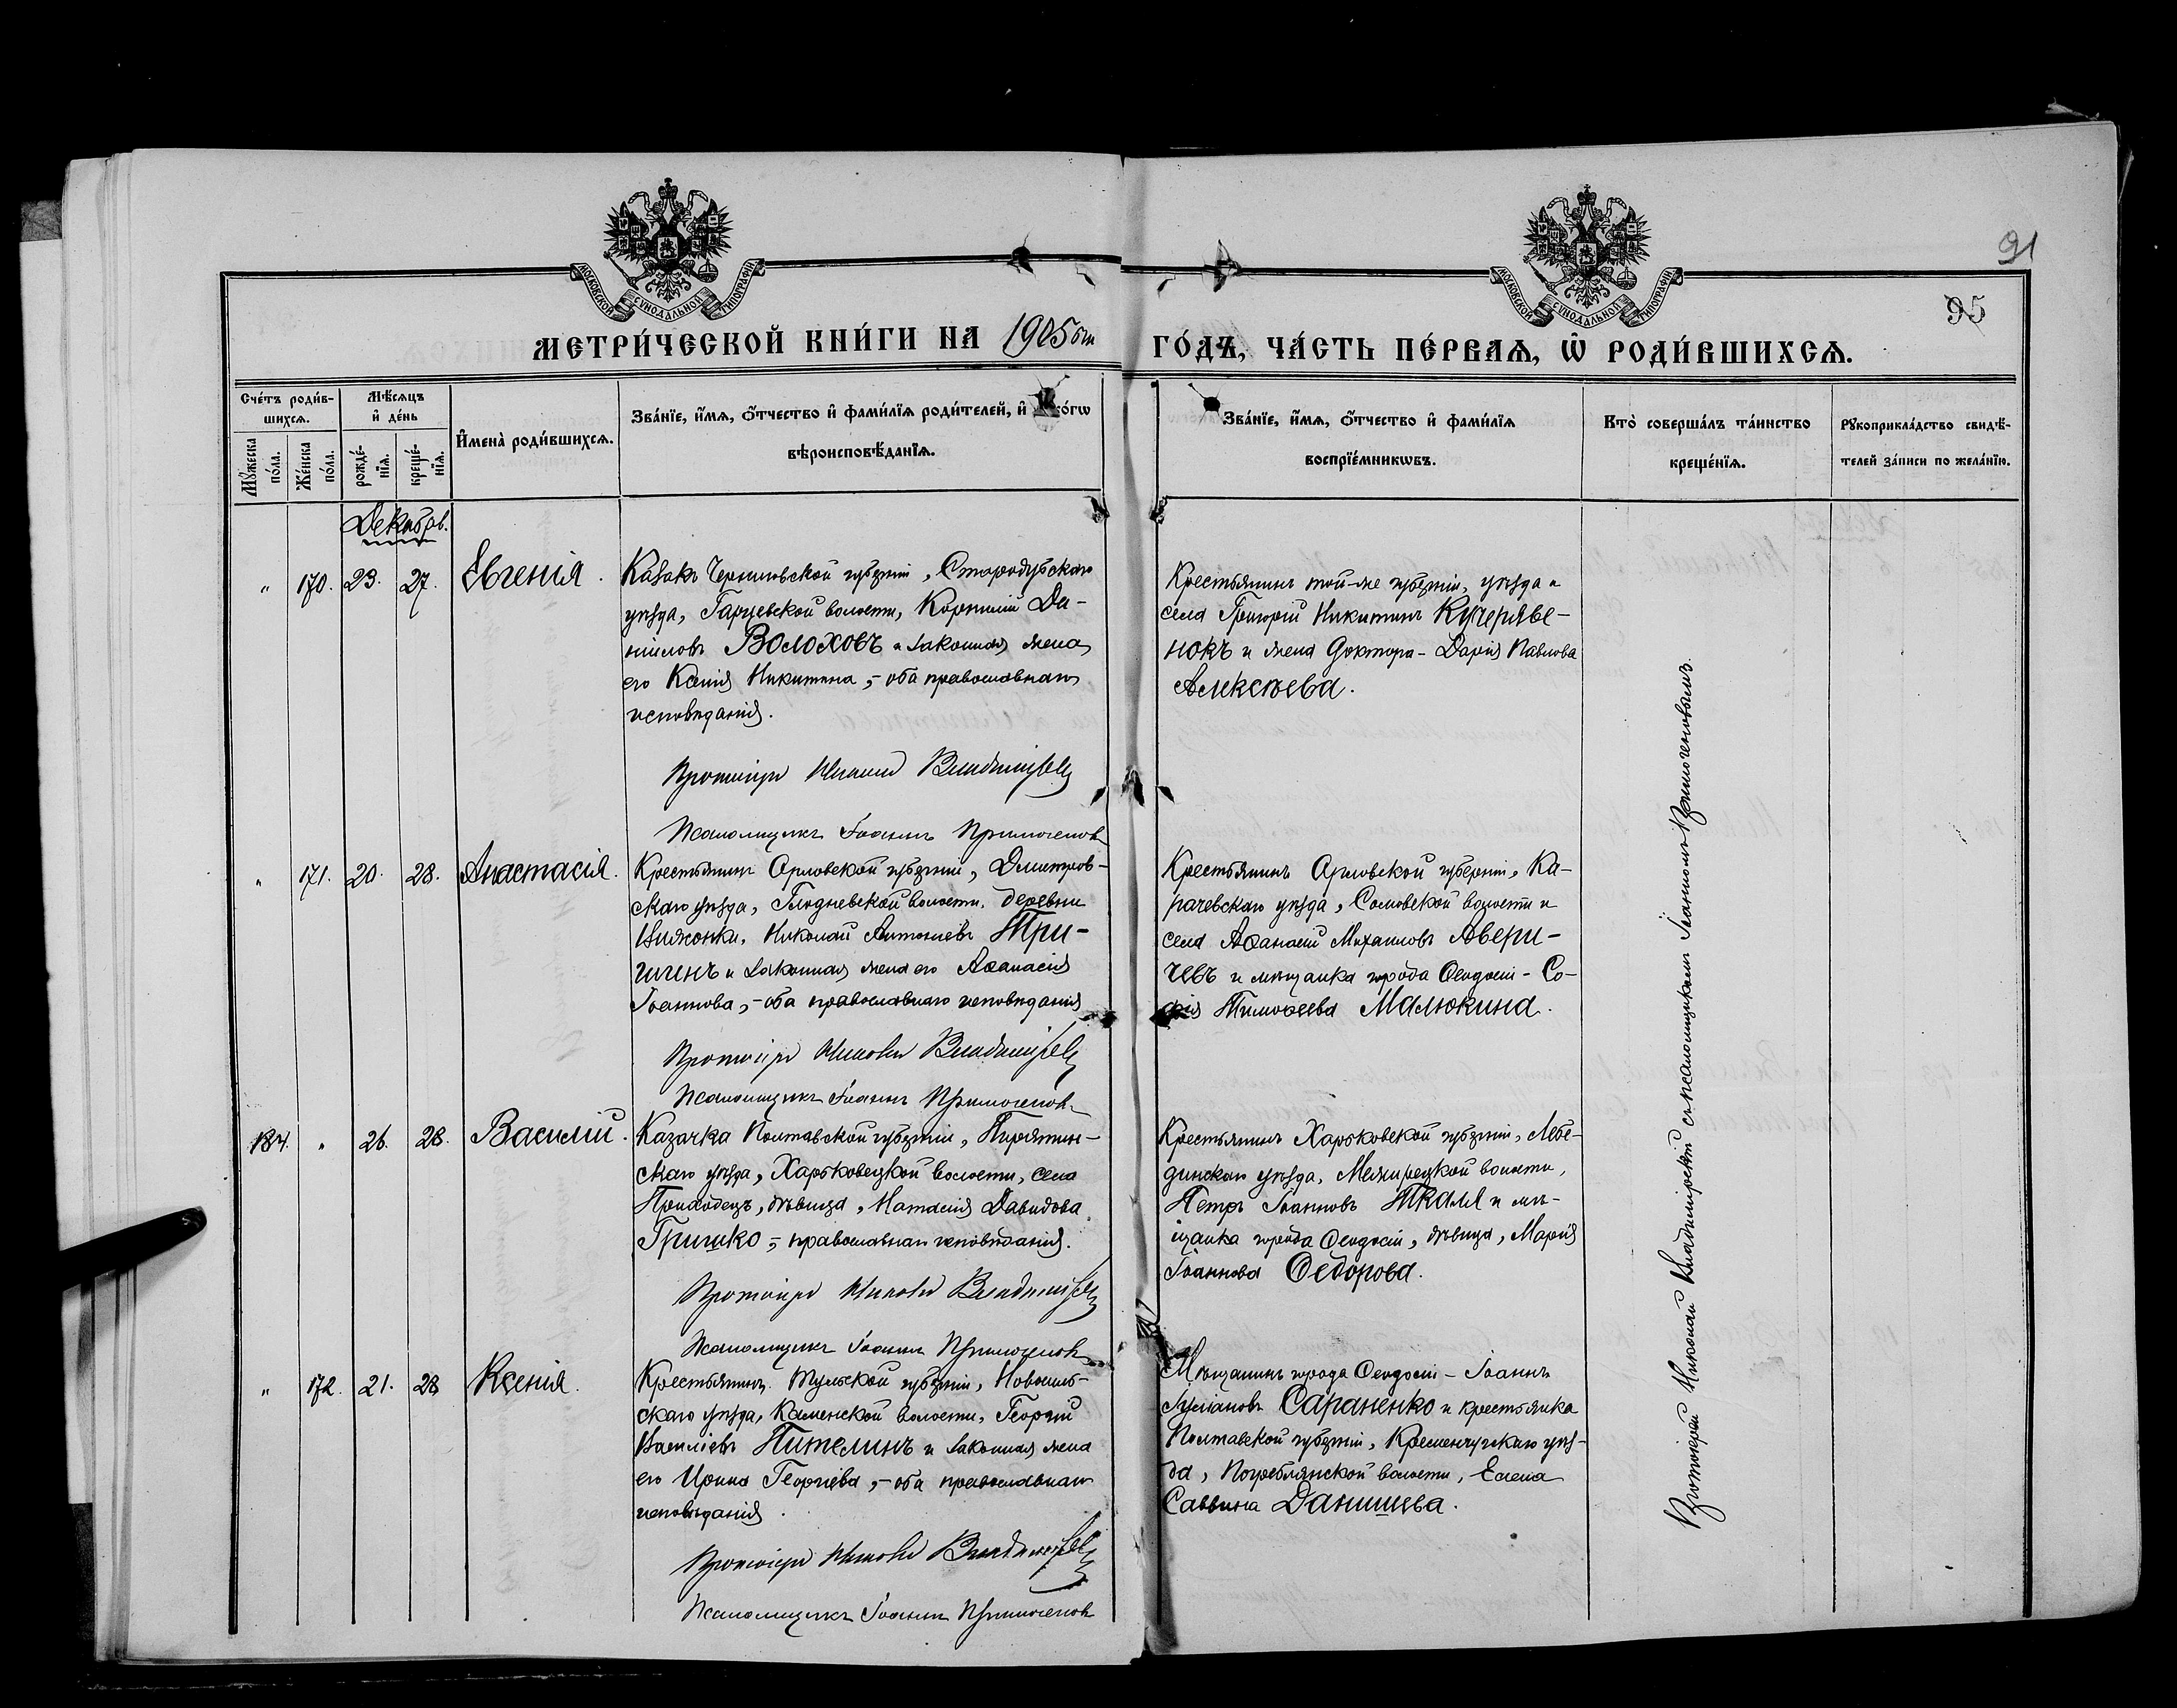 91
95
МОСКОВСКОЙ СѴНОДАЛЬНОЙ ТИПОГРАФІИ
МОСКОВСКОЙ СѴНОДАЛЬНОЙ ТИПОГРАФІИ
МЕТРИ́ЧЕСКОЙ КНИ́ГИ НА 1905ый ГО́ДЪ, ЧА́СТЬ ПЕ́РВАѦ, Ѡ РОДИ́ВШИХСѦ.
Сче́тъ роди́в-
шихсѧ.
Мꙋ́жеска
по́ла.
Же́нска
по́ла.
Мѣ́сѧцъ
и҆ де́нь
рожде́-
нїѧ.
креще́-
нїѧ.
И҆мена̀ роди́вшихсѧ.
Зва́нїе, и҆́мѧ, ѻ҆́тчество и҆ фами́лїѧ роди́телей, и҆ ко́гѡ
вѣроисповѣ́данїѧ.
Зва́нїе, и҆́мѧ, ѻ҆́тчество и҆ фами́лїѧ
воспрїе́мникѡвъ.
Кто̀ соверша́лъ та́инство
креще́нїѧ.
Рꙋкоприкла́дство свидѣ́-
телей за́писи по жела́нїю.
Декабрь.
" 170. 23. 27. Евгенія.
Казакъ Черниговской губерніи, Стародубскаго
уѣзда, Гарцевской волости, Корнилій Да-
ніиловъ Волоховъ и законная жена
его Ксенія Никитина, - оба православнаго
исповѣданія.
Протоіерей Николай Владимірскій
Псаломщикъ Іоаннъ Примогеновъ
Крестьянинъ той-же губерніи, уѣзда и
села Григорій Никитинъ Кучеряве-
нокъ и жена доктора - Дарія Павлова
Алексѣева.
" 171. 20. 28. Анастасія.
Крестьянинъ Орловской губерніи, Дмитров-
скаго уѣзда, Глодневской волости, деревни
Николай Антоніевъ Три-
шинъ и законная жена его Аѳанасія
Іоаннова, - оба православнаго исповѣданія
Протоіерей Николай Владимірскій
Псаломщикъ Іоаннъ Примогеновъ
Крестьянинъ Орловской губерніи, Ка-
рачевскаго уѣзда, Сомовской волости и
села Аѳанасій Михаиловъ Авери-
чевъ и мѣщанка города Ѳеодосіи - Со-
фія Тимоѳеева Малюкина.
184. " 26. 28. Василій.
Казачка Полтавской губерніи, Пирятин-
скаго уѣзда, Харьковецкой волости, села
Приходекъ, дѣвица, Наталія Давидова
Гришко, - православнаго исповѣданія.
Протоіерей Николай Владимірскій
Псаломщикъ Іоаннъ Примогеновъ
Крестьянинъ Харьковской губерніи, Лебе-
динскаго уѣзда, Межирецкой волости,
Петръ Іоанновъ Ткаля и мѣ-
щанка города Ѳеодосіи, дѣвица, Марія
Іоаннова Ѳедорова.
" 172. 21. 28 Ксенія.
Крестьянинъ Тульской губерніи, Новосиль-
скаго уѣзда, Каменской волости, Георгій
Василіевъ Пителинъ и законная жена
его Ирина Георгіева, - оба православнаго
исповѣданія.
Протоіерей Николай Владимірскій
Псаломщикъ Іоаннъ Примогеновъ
Мѣщанинъ города Ѳеодосіи - Іоаннъ
Іуліановъ Сараненко и крестьянка
Полтавской губерніи, Кременчугскаго уѣз-
да, Погреблянской волости, Елена
Саввина Данишева.
Протоіерей Николай Владимірскій съ псаломщикомъ Іоанномъ Примогеновымъ.